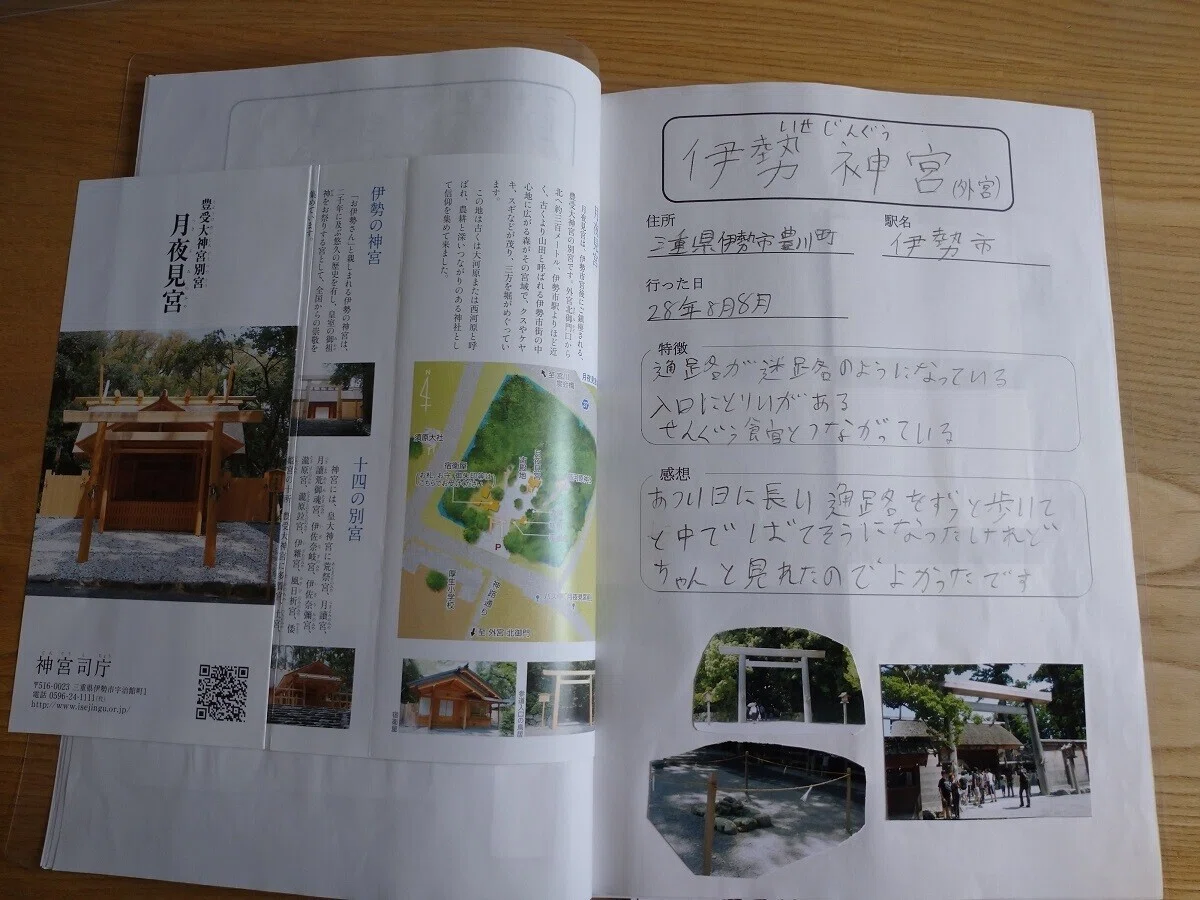 豊受大神宮別宮
月夜見宮
神宮司庁
〒516-0023 三重県伊勢市宇治館町1
電話 0596-24-1111㈹
http://www.isejingu.or.jp/
伊勢の神宮
「お伊勢さん」と親しまれる伊勢の神宮は、
二千年に及ぶ悠久の歴史を有し、皇室の御祖
神をお祭りする宮として、全国からの崇敬を
集めています
十四の別宮
神宮には、皇大神宮に荒祭宮、月讀宮、
月讀荒御魂宮、伊佐奈岐宮、伊佐奈彌宮、
瀧原宮、瀧原竝宮、伊雜宮、風日祈宮、倭
月夜見宮は、伊勢市宮後にご鎮座される、
豊受大神宮の別宮です。外宮北御門口から
北へ約三百メートル、伊勢市駅よりほど近
く、古くより山田と呼ばれる伊勢市街の中
心地に広がる森がその宮域で、クスやケヤ
キ、スギなどが茂り、三方を堀がめぐってい
ます。
この地は古くは大河原または西河原と呼
ばれ、農耕と深いつながりのある神社とし
て信仰を集めて来ました。
N
須原大社
宿衛屋
古殿地
P
厚生小学校
神路通り
至 外宮 北御門
宿衛屋
いせ じんぐう
伊勢 神宮(外宮)
住所
三重県伊勢市豊川町
駅名
伊勢市
行った日
28年8月8月
特徴
通路が迷路のようになっている
入口にとりいがある
せんぐう館とつながっている
感想
あつい日に長い通路をずっと歩いて
と中でばてそうになったけれど
ちゃんと見れたのでよかったです